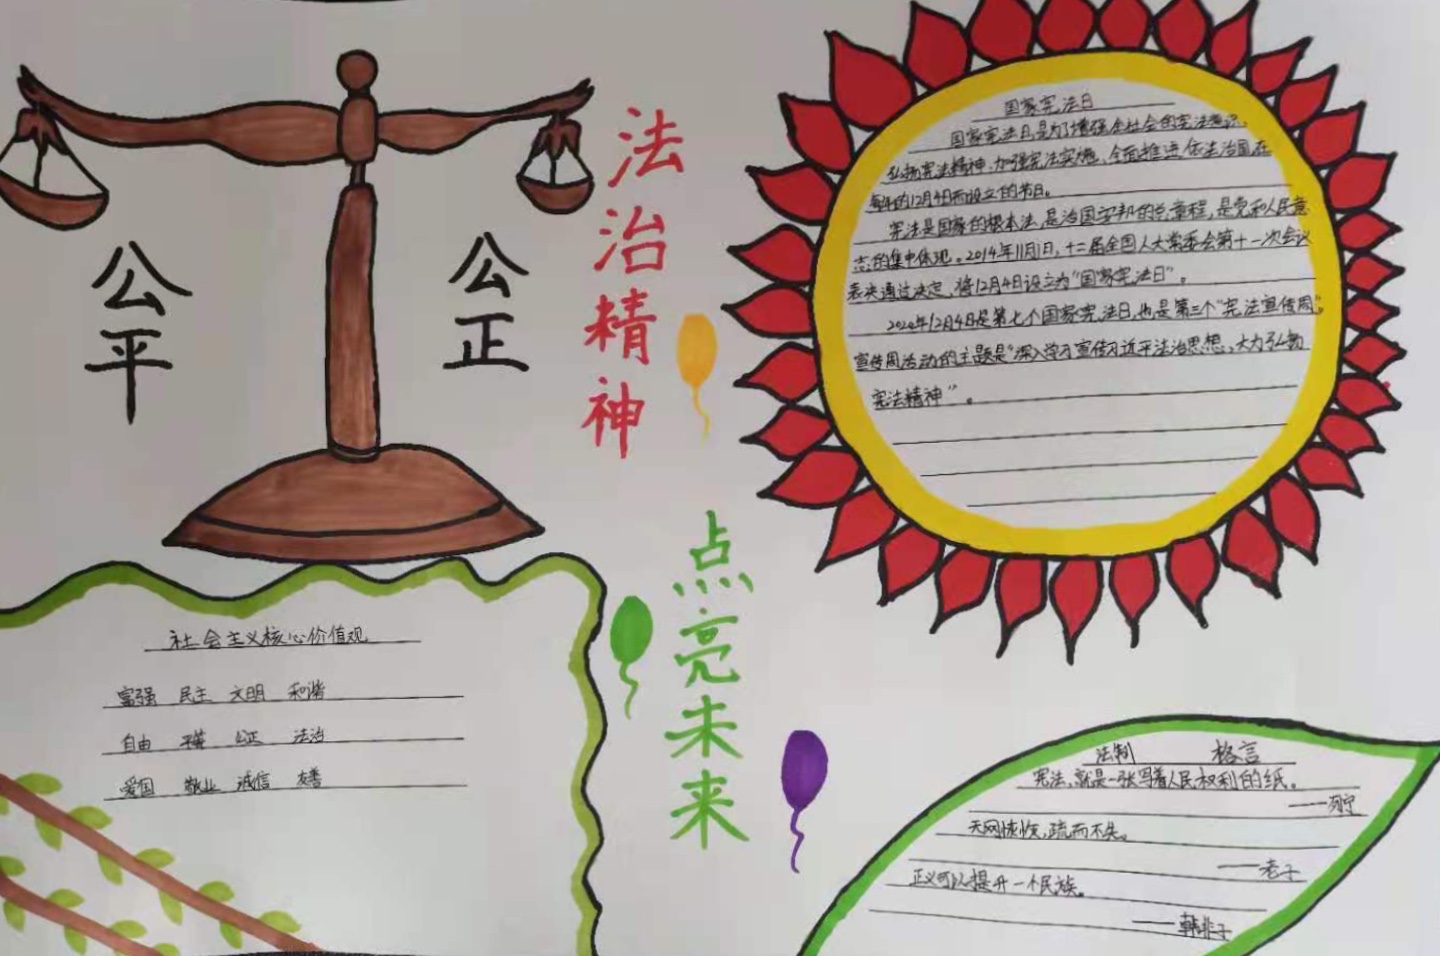 公平
公正
法治精神
点亮未来
国家宪法日
国家宪法日,是为了增强全社会的宪法意识、
弘扬宪法精神、加强宪法实施、全面推进依法治国在
每年的12月4日而设立的节日。
宪法是国家的根本法,是治国安邦的总章程,是党和人民意
志的集中体现。2014年11月1日,十二届全国人大常委会第十一次会议
表决通过决定,将12月4日设立为"国家宪法日"。
2020年12月4日是第七个国家宪法日,也是第三个"宪法宣传周"
宣传周活动的主题是"深入学习宣传习近平法治思想,大力弘扬
宪法精神"。
社会主义核心价值观
富强 民主 文明 和谐
自由 平等 公正 法治
爱国 敬业 诚信 友善
法制 格言
宪法,就是一张写着人民权利的纸。
——列宁
天网恢恢,疏而不失。
——老子
正义可以提升一个民族。
——韩非子